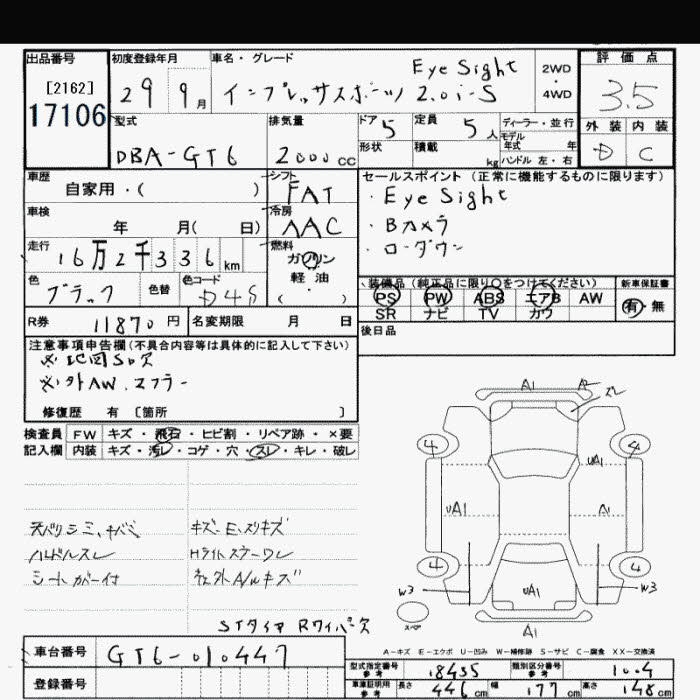 出品番号 初度登録年月 車名・グレード 評価点
[2162] 29 9月 Eye Sight 2WD・4WD
17106 インプレッサスポーツ 2.0i-S 3.5
型式 排気量 ドア 定員 ディーラー・並行 外装 内装
DBA-GT6 2000cc 5 5人 モデル年式 年 D C
形状 積載 kg ハンドル 左・右
車歴 シフト セールスポイント(正常に機能するものに限ります)
自家用・( ) FAT ・Eye Sight
車検 冷房 ・Bカメラ
年 月( 日) AAC ・ローダウン
走行 燃料
16万2千336km ガソリン
軽油・( )
色 色替 色コード 装備品(純正品に限り○をつけてください) 新車保証書
ブラック D4S PS PW ABS エアB AW 有・無
SR ナビ TV カワ
R券 11870円 名変期限 月 日 後日品
注意事項申告欄(不具合内容等は具体的に記入して下さい)
※地図SD欠
※外AW、マフラー
修復歴 有 [箇所 ]
検査員 FW キズ・飛石・ヒビ割・リペア跡・×要
記入欄 内装 キズ・汚レ・コゲ・穴・スレ・キレ・破レ
天バリシミ、
ハンドルスレ
シートカバー付
キズ・E、スリキズ
Hライトステーワレ
社外A/Wキズ
STタイヤ Rワイパー欠
A1 A2
4 4
UA1
UA1 A1
4 4
W3 UA1 W3
スペア
A1
A-キズ E-エクボ U-凹み W-補修跡 S-サビ C-腐食 XX-交換済
車台番号 GT6-010447
登録番号
型式指定番号 参考 18435 類別区分番号 参考
車庫証明用 参考 長さ 446cm 幅 177cm 高さ 148cm